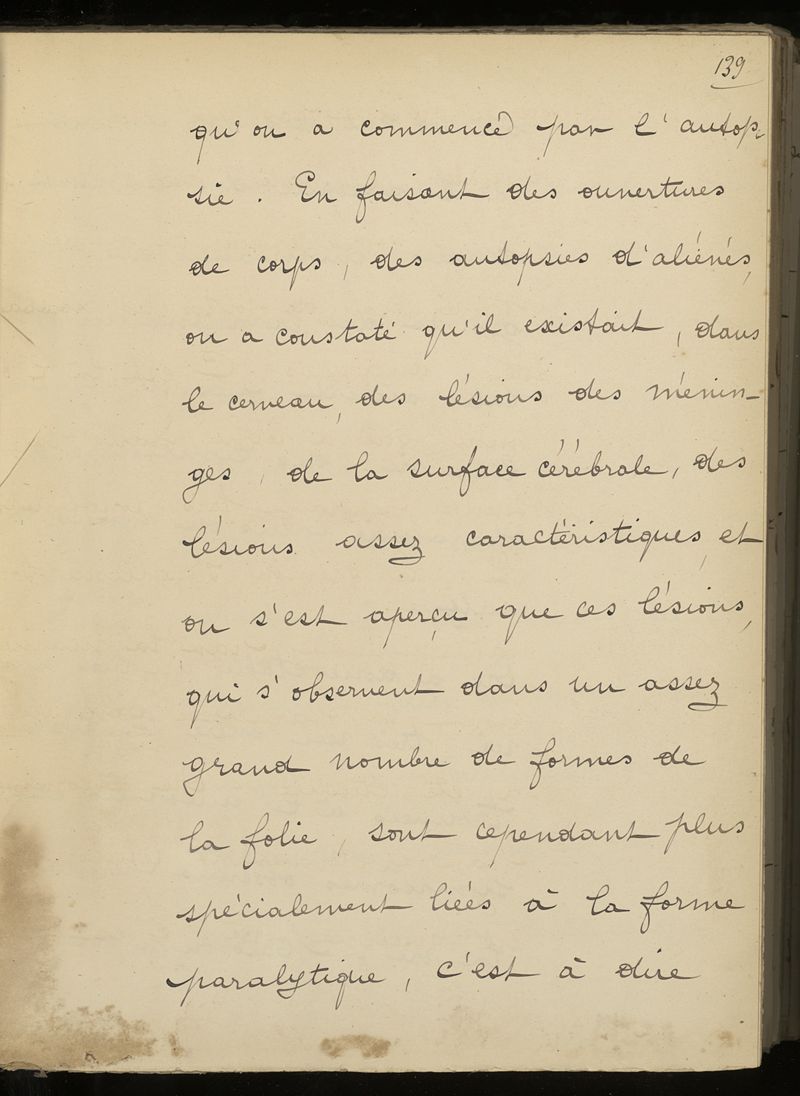 139
qu'on a commencé par l'autop-
sie. En faisant des ouvertures
de corps, des autopsies d'aliénés,
on a constaté qu'il existait, dans
le cerveau, des lésions des ménin-
ges, de la surface cérébrale, des
lésions assez caractéristiques, et
on s'est aperçu que ces lésions,
qui s'observent dans un assez
grand nombre de formes de
la folie, sont cependant plus
spécialement liées à la forme
paralytique, c'est à dire